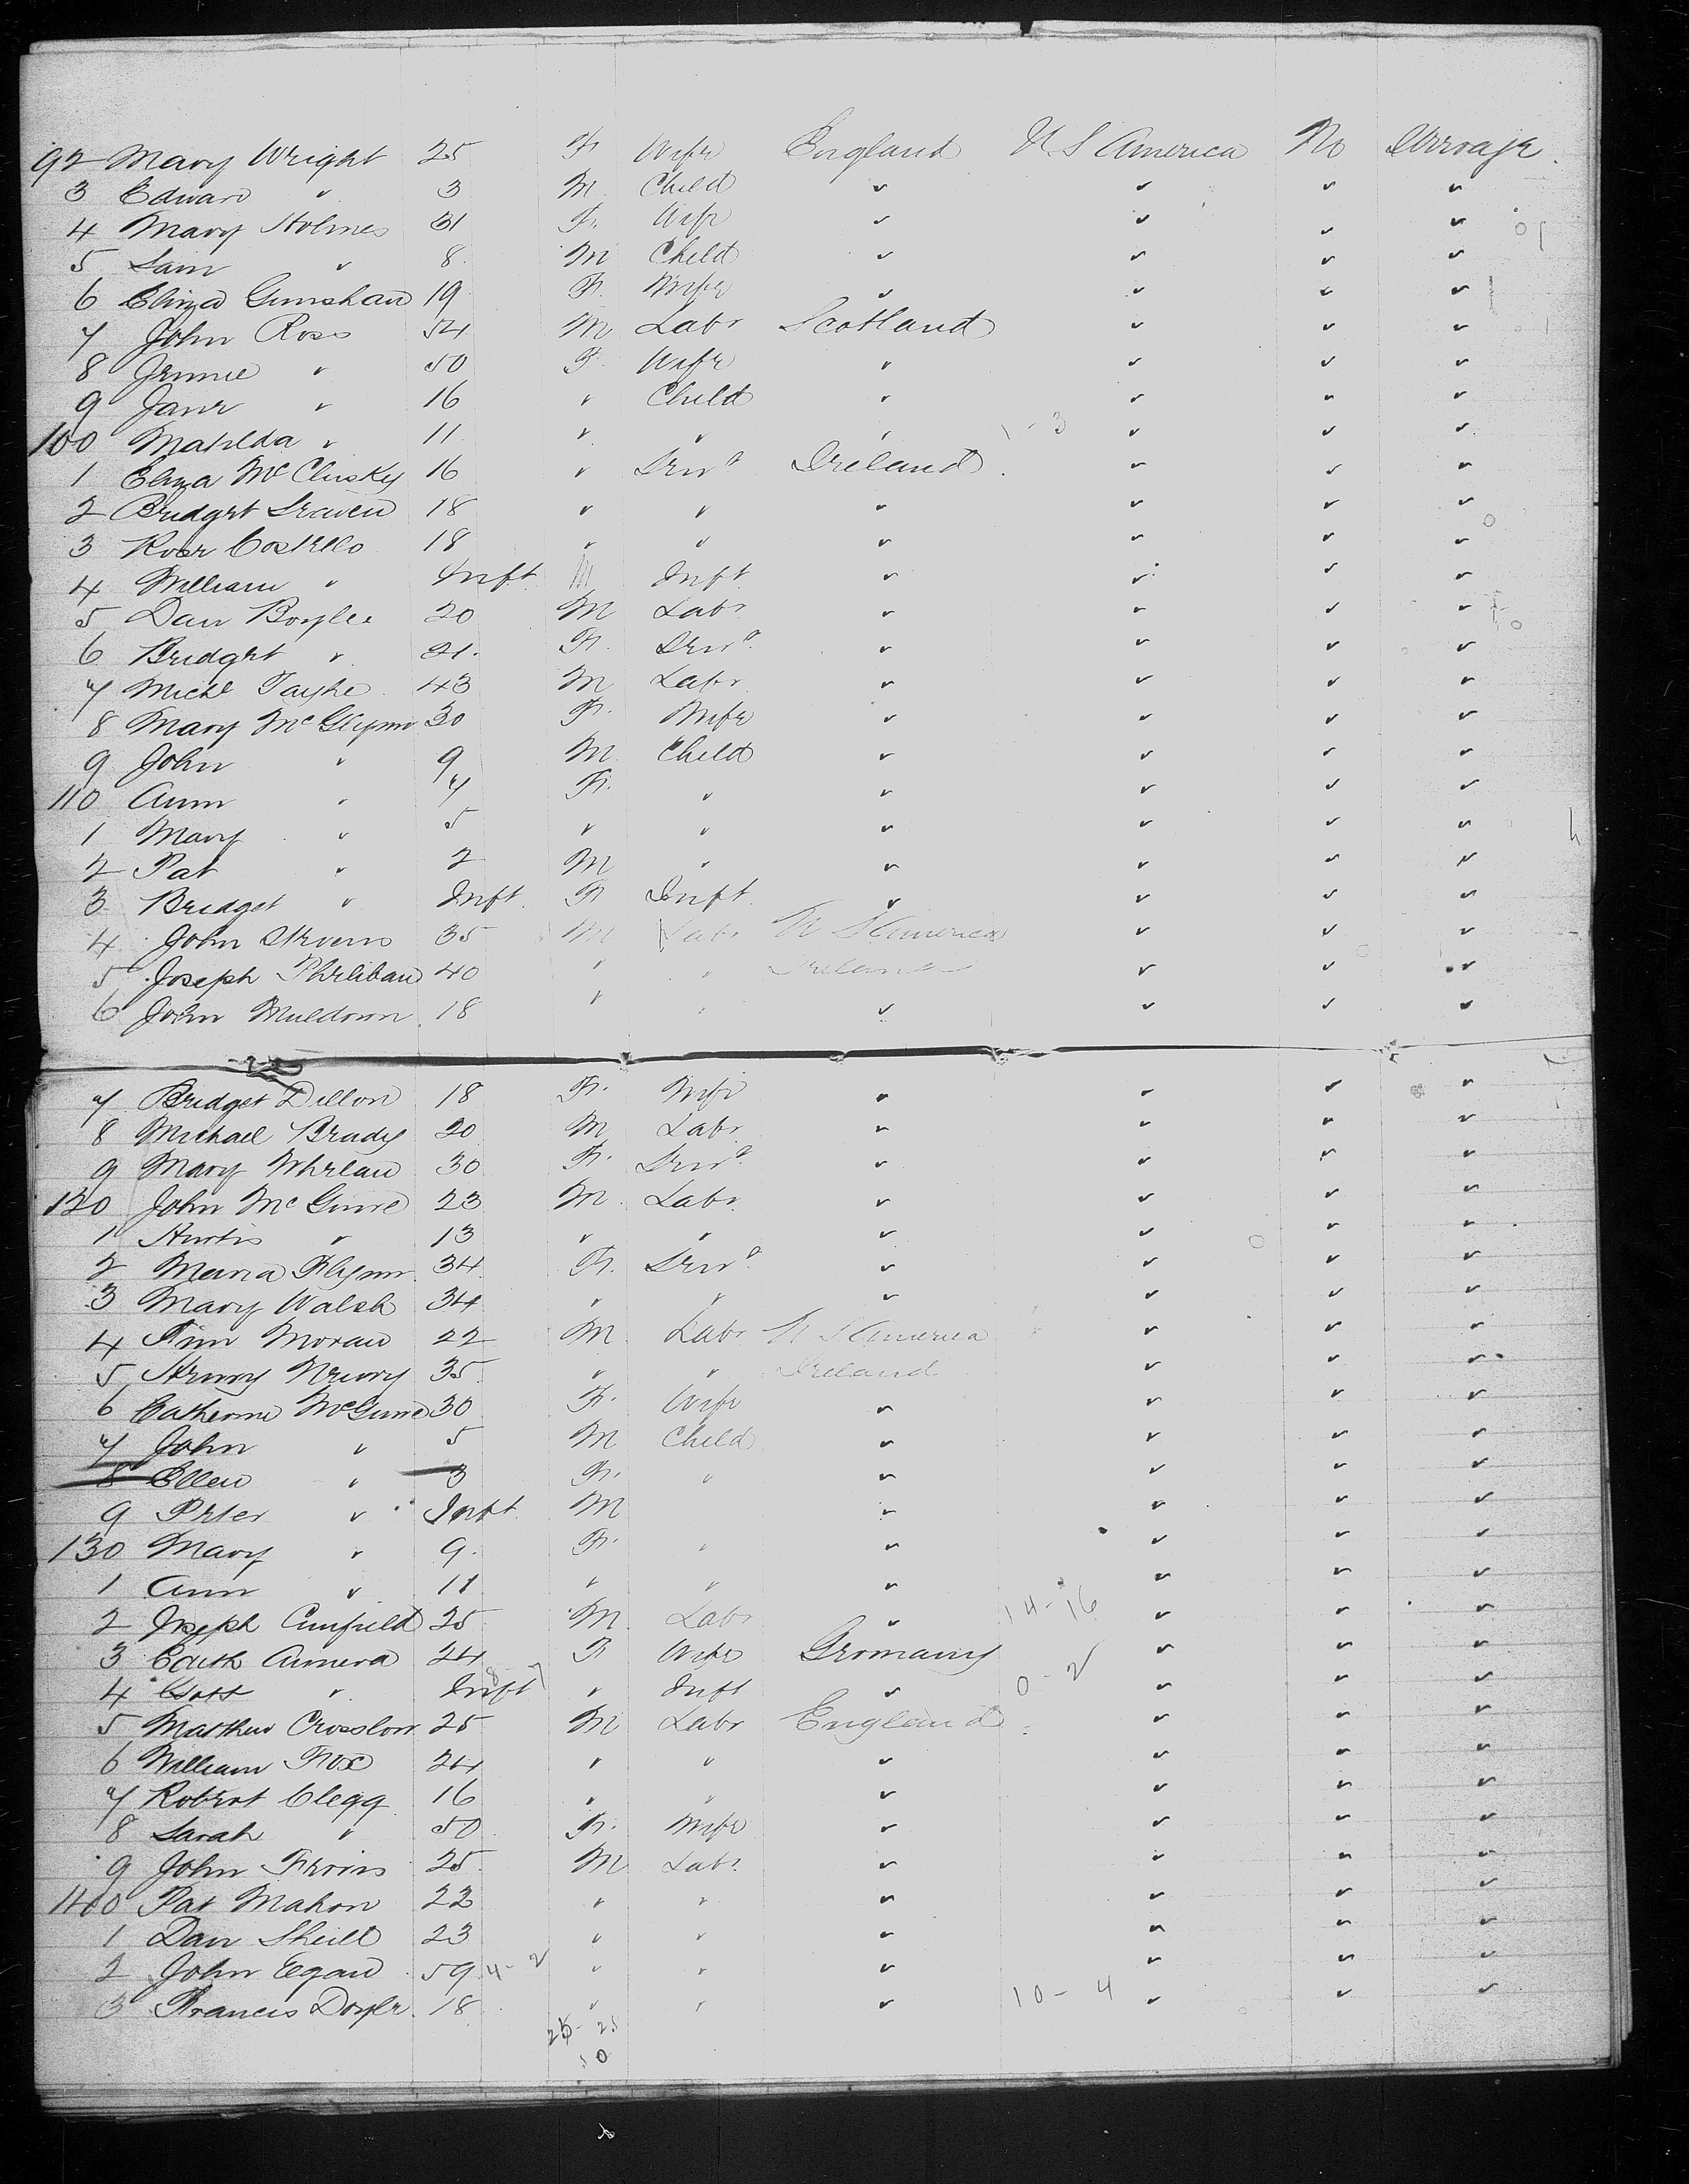 92 Mary Wright 25 F. Wife England U S America No Steerage
3 Edward " 3 M Child " " " "
4 Mary Holmes 31 F. Wife " " " "
5 Sam " 8 M Child " " " "
6 Eliza Gunshaw 19 F. Wife " " " "
7 John Ross 54 M Labr Scotland " " "
8 Jennie " 50 F. Wife " " " "
9 Jane " 16 " Child " " " "
100 Matilda " 11 " " " 1-3 " " "
1 Eliza McClusky 16 " Servt Ireland " " "
2 Bridget 18 " " " " " "
3 Rose Costello 18 " " " " " "
4 William " Inft M Inft " " " "
5 Dan Boyle 20 M Labr " " " "
6 Bridget " 21 F. Servt " " " "
7 Michl 43 M Labr " " " "
8 Mary McGlynn 30 F. Wife " " " "
9 John " 9 M Child " " " "
110 Ann " 7 F. " " " " "
1 Mary " 5 " " " " " "
2 Pat " 2 M " " " " "
3 Bridget " Inft F Inft " " " "
4 John Stevens 35 M Labr U S America " " "
5 Joseph 40 " " Ireland " " "
6 John Muldoon 18 " " " " " "
7 Bridget Dillon 18 F. Wife " " " "
8 Michael Brady 20 M Labr " " " "
9 Mary Whelan 30 F. Servt " " " "
120 John McGuire 23 M Labr " " " "
1 " 13 " " " " " "
2 Maria Flynn 34 F. Servt " " " "
3 Mary Walsh 34 " " " " " "
4 Tim Moran 22 M Labr U S America " " "
5 Henry 35 " " Ireland " " "
6 Catherine McGuire 30 F. Wife " " " "
7 John " 5 M Child " " " "
8 Ellen " 3 F. " " " " "
9 Peter " Inft M " " " "
130 Mary " 9 F. " " " " "
1 Ann " 11 " " " " " "
2 Joseph 25 M Labr " 14-16 " " "
3 24 F Wife Germany " " "
4 " Inft " Inft " 0-2 " " "
5 Matthew Crosslow 25 M Labr England " " "
6 William Fox 24 " " " " " "
7 Robert Clegg 16 " " " " " "
8 Sarah " 50 F. Wife " " " "
9 John 25 M Labr " " " "
140 Pat Mahon 22 " " " " " "
1 Dan 23 " " " " " "
2 John Egan 59 4-2 " " " " " "
3 Francis Doyle 18 " " " 10-4 " " "